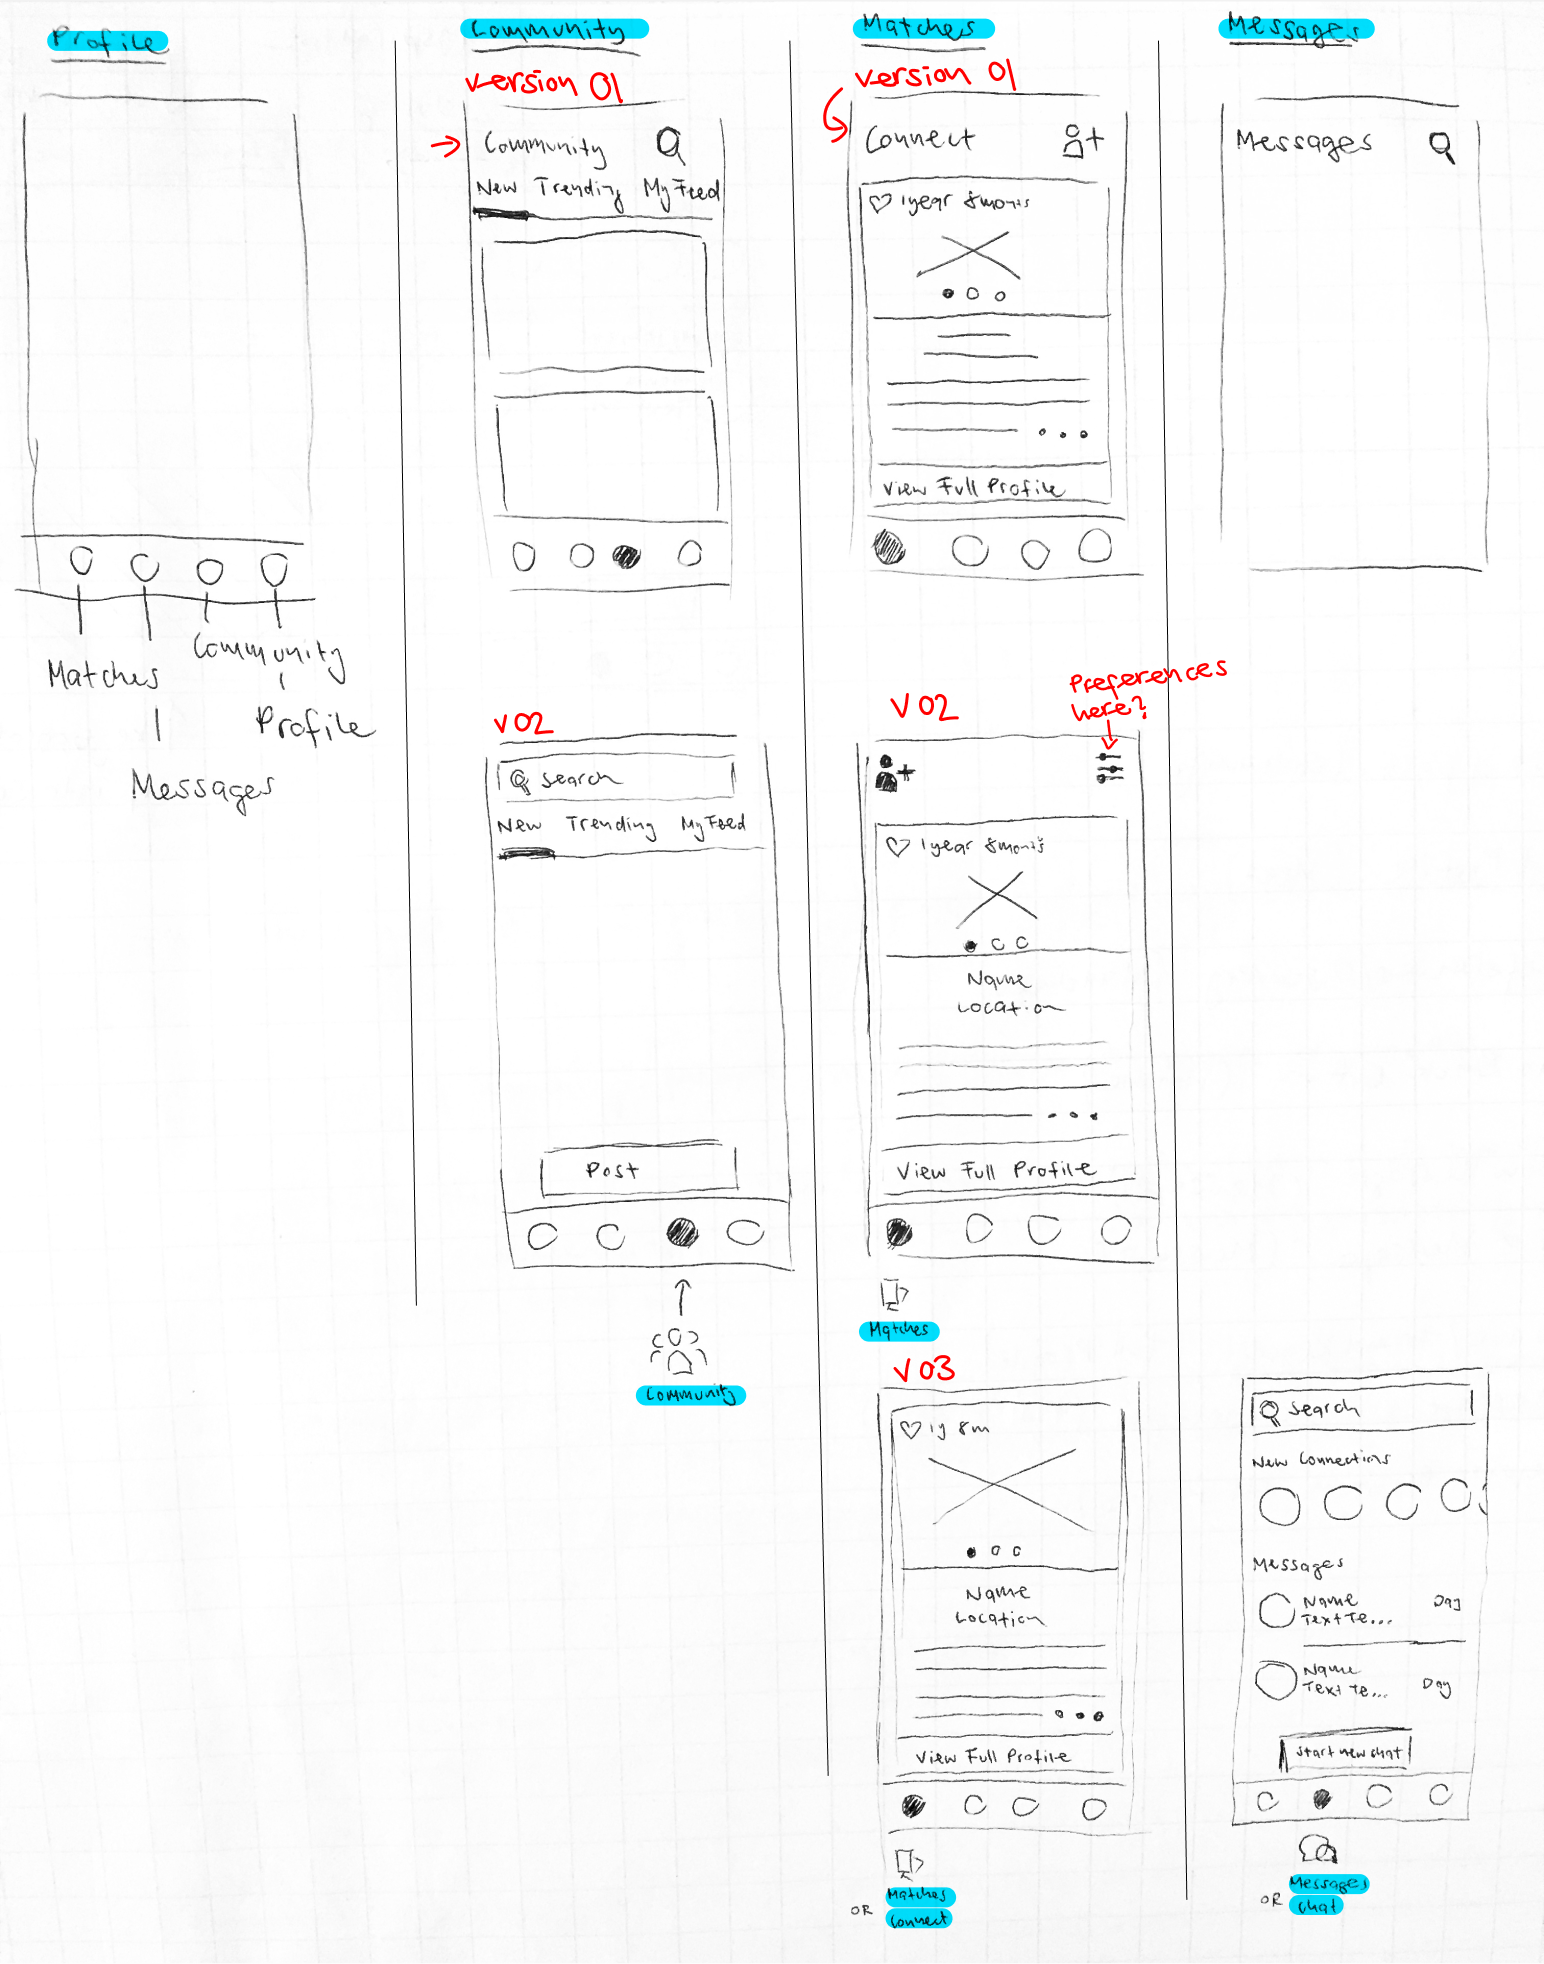 Profile
Matches
Community
Profile
Messages
Community
Version 01
Community
New Trending My Feed
V02
Search
New Trending My Feed
Post
Community
Matches
Version 01
Connect
1year 8monts
View Full Profile
V02
Preferences
here?
1year 8monts
Name
Location
View Full Profile
Matches
V03
1y 8m
Name
Location
View Full Profile
Matches
OR Connect
Messages
Messages
Search
New Connections
Messages
Name Day
Text Te...
Name
Text Te... Day
Start new chat
Messages
OR Chat